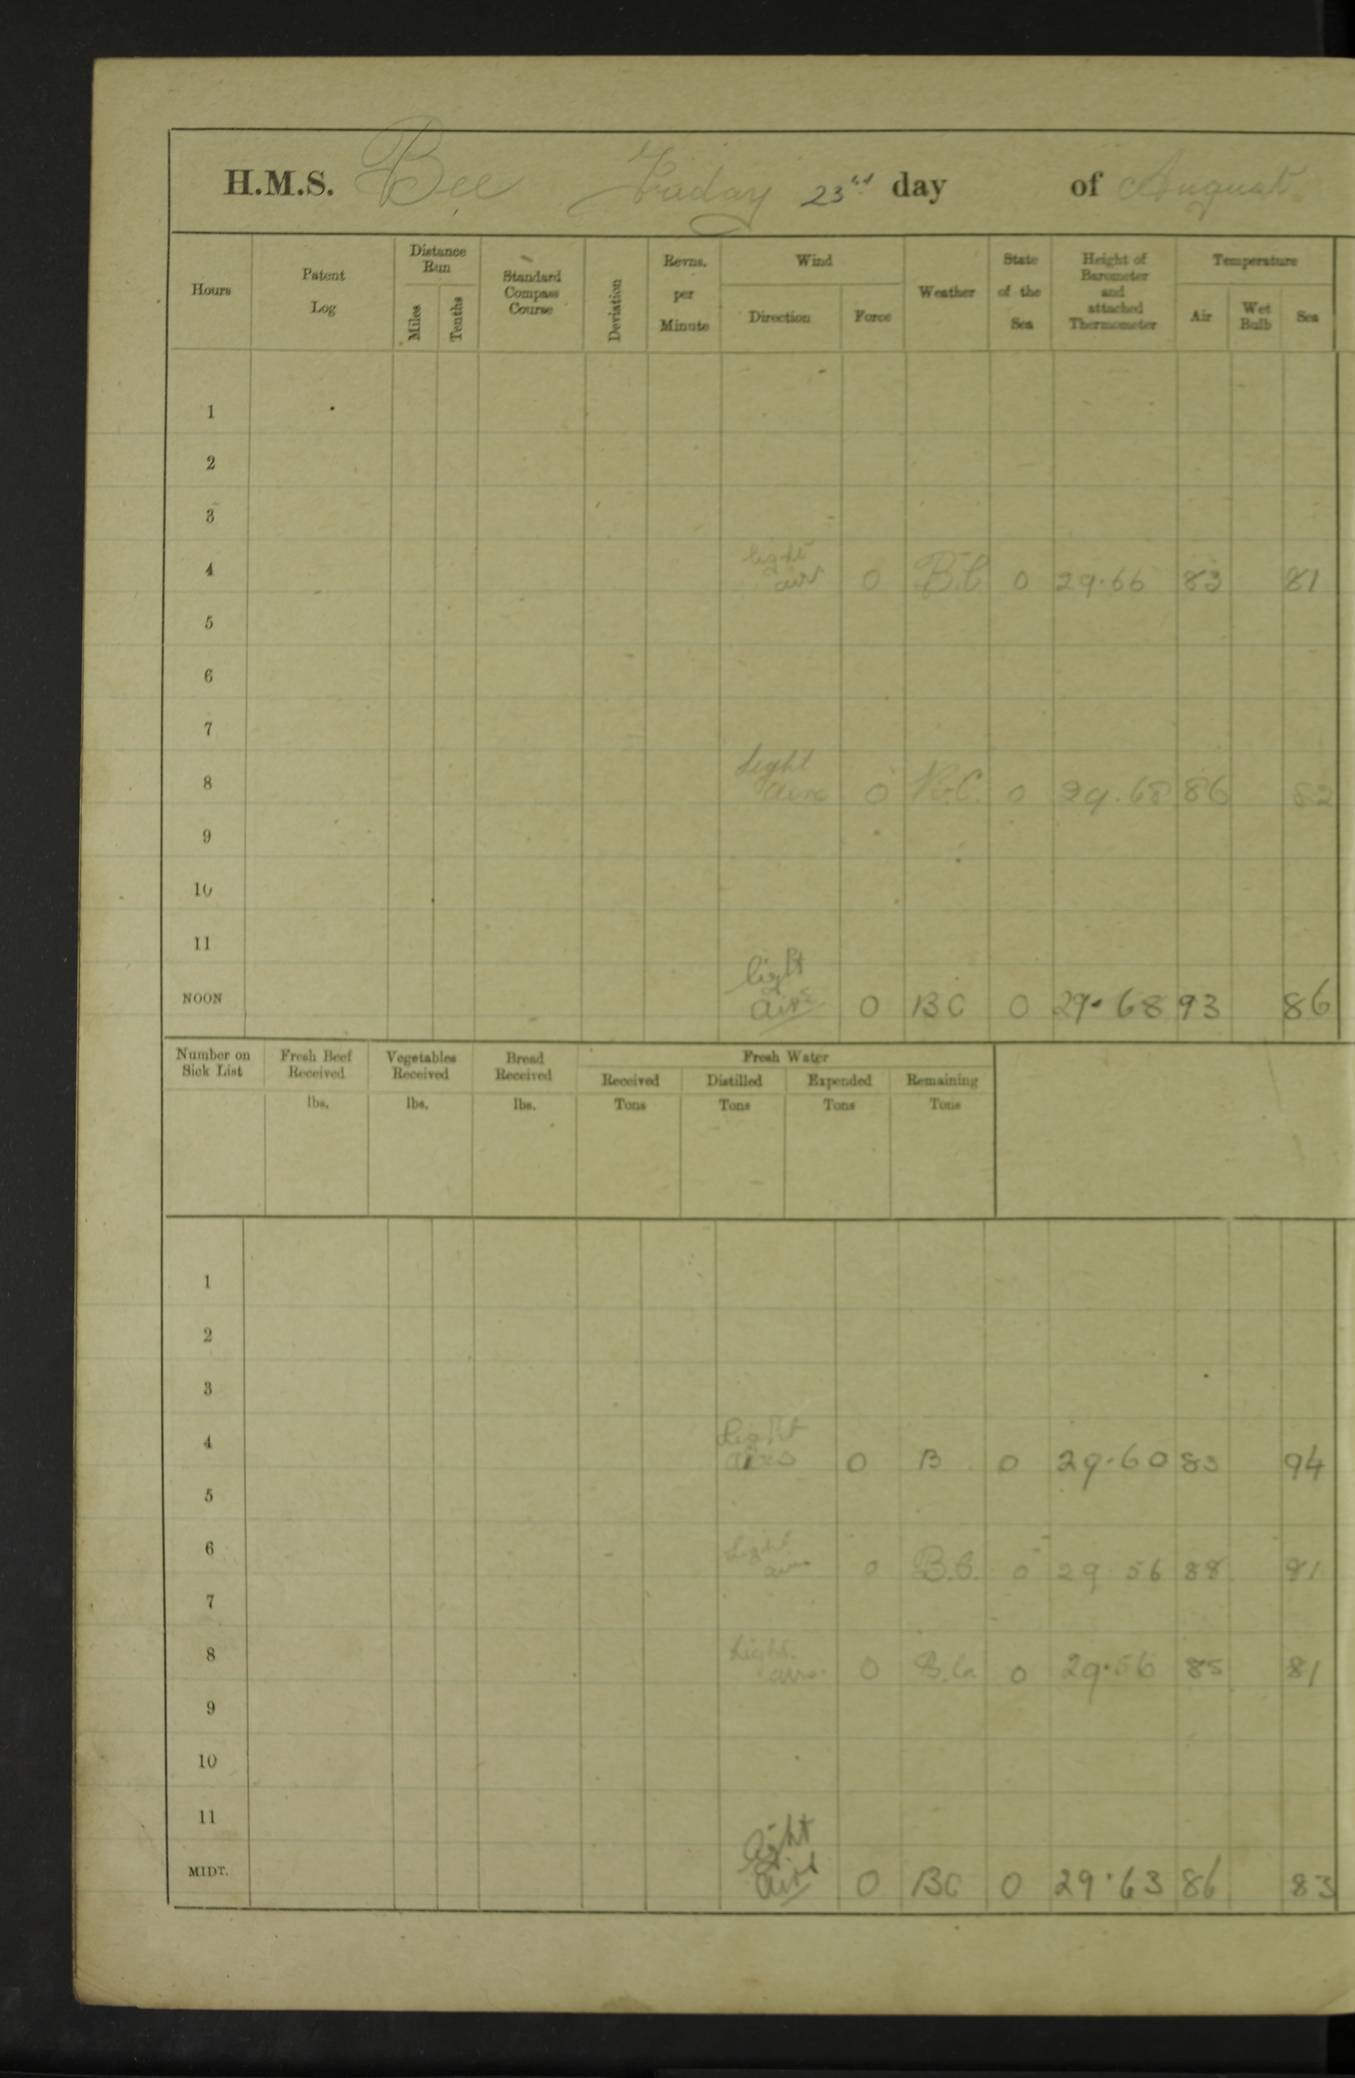 H.M.S. Bee Friday 23rd day of August
Hours Patent Log Distance Run Miles Tenths Standard Compass Course Deviation Revns. per Minute Wind Direction Force Weather State of the Sea Height of Barometer and attached Thermometer Temperature Air Wet Bulb Sea
1
2
3
4 light air 0 B.C 0 29.66 83 81
5
6
7
8 Light airs 0 B.C. 0 29.68 86 82
9
10
11
NOON light airs 0 BC 0 29.68 93 86
Number on Sick List Fresh Beef Received lbs. Vegetables Received lbs. Bread Received lbs. Fresh Water Received Tons Distilled Tons Expended Tons Remaining Tons
1
2
3
4 Light airs 0 B 0 29.60 83 94
5
6 Light airs 0 B.C. 0 29 56 88 81
7
8 Light airs 0 B.C. 0 29.56 85 81
9
10
11
MIDT. light airs 0 BC 0 29.63 86 83